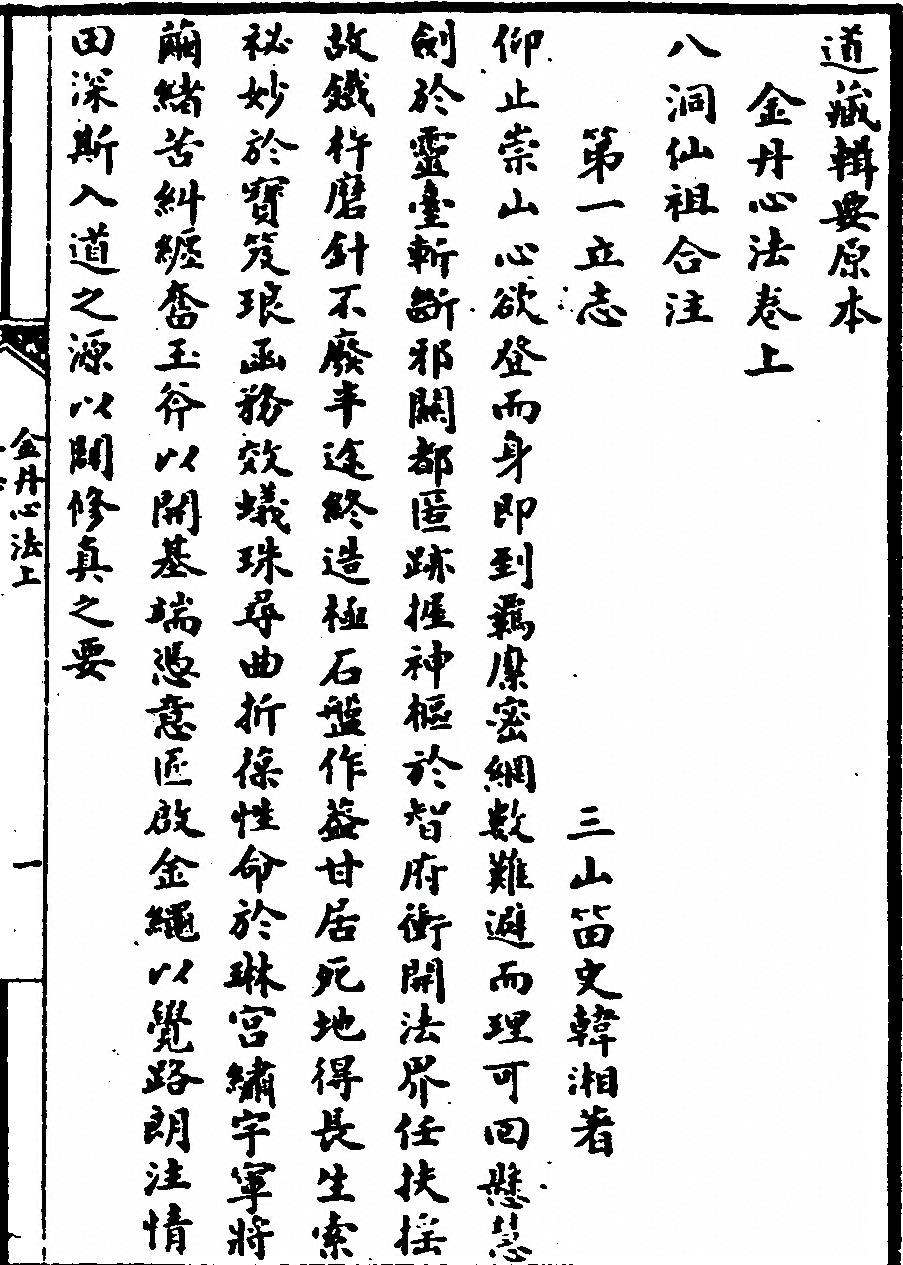 道藏輯要原本
金丹心法卷上
八洞仙祖合注
第一立志
三山笛史韓湘著
仰止崇山心欲登而身即到羈縻密網數難避而理可回懸慧
劍於靈臺斬斷邪關都匿跡握神樞於智府衝開法界任扶搖
故鐵杵磨針不廢半途終造極石盤作葢甘居死地得長生索
祕妙於寶笈琅函務效蟻珠尋曲折葆性命於琳宮繡宇寧將
繭緒苦糾纏奮玉斧以開基端憑意匠啟金繩以覺路朗注情
田深斯入道之源以闢修真之要
金丹心法上
一